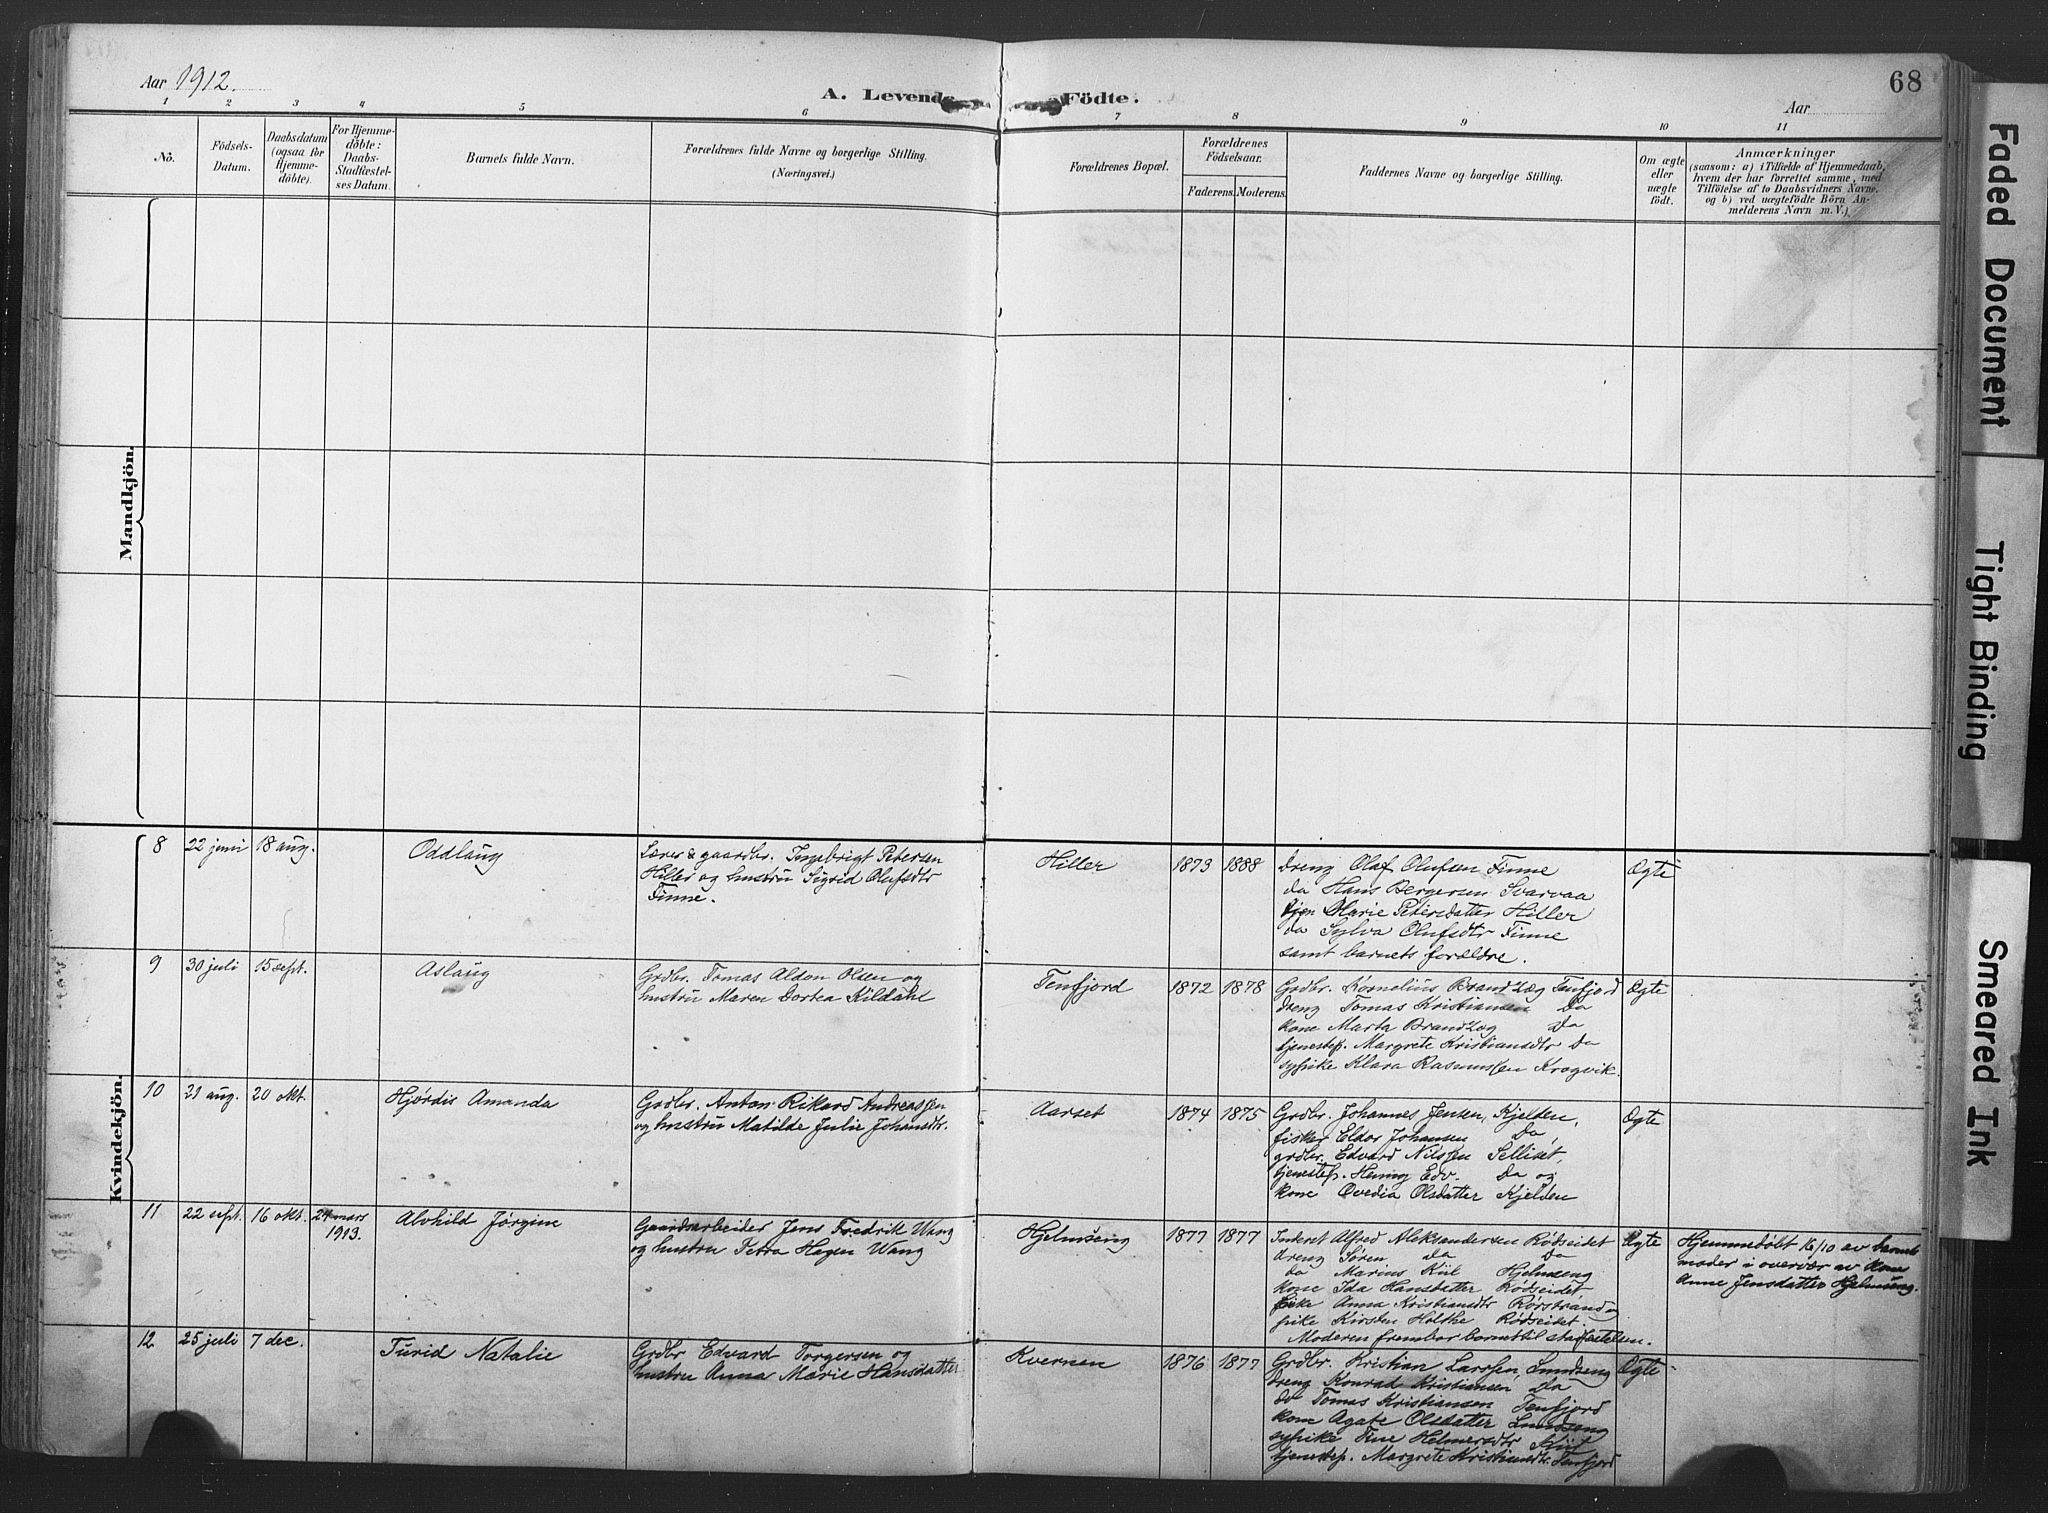 68
Aar 1912.
A. Levende Födte.
Aar
1 2 3 4 5 6 7 8 9 10 11
No.
Födsels-
Datum.
Daabsdatum
(ogsaa for
Hjemme-
döbte).
For Hjemme-
döbte:
Daabs-
Stadfæstel-
ses Datum.
Barnets fulde Navn.
Forældrenes fulde Navne og borgerlige Stilling.
(Næringsvei.)
Forældrenes Bopæl.
Forældrenes
Födselsaar.
Faderens. Moderens.
Faddernes Navne og borgerlige Stilling.
Om ægte
eller
uægte
födt.
Anmærkninger
(saasom: a) i Tilfælde af Hjemmedaab,
hvem der har forrettet samme, med
Tilföielse af to Daabsvidners Navne,
og b) ved uægtefödte Börn An-
melderens Navn m. V.)
Mandkjön.
Kvindekjön.
8 22 juni 18 aug.
Oddlaug
Lærer & gaardbr. Ingebrigt Petersen
Hiller og hustru Sigrid Olufsdtr
Finne.
Hiller
1873 1888
Dreng Olaf Olufsen Finne
do Hans Bergersen Svarvaa
Pjen Marie Petersdatter Hiller
do Sylva Olufsdtr Finne
samt barnets forældre.
Ægte
9 30 juli 15 sept.
Aslaug
Grdbr. Tomas Aldon Olsen og
hustru Maren Dortea Kildahl
Tenfjord
1872 1878
Grdbr. Kornelius Brandzæg Tenfjord
dreng Tomas Kristiansen Do
kone Marta Brandzæg Do
tjenestep. Margrete Kristiansdtr Do
sypike Klara Rasmussen Krogvik.
Ægte
10 21 aug. 20 okt.
Hjørdis Amanda
Grdbr. Anton Rikard Andreassen
og hustru Matilde Julie Johansdtr.
Aarset
1874 1875
Grdbr. Johannes Jensen, Kjelden,
fisker Eldor Johansen Do,
grdbr. Edvard Nilssen Selliset,
tjenestep. Henny Edv. Do og
kone Ovedia Olsdatter Kjelden
Ægte
11 22 sept. 16 okt. 24 mars
1913.
Alvhild Jørgine
Gaardsarbeider Jens Fredrik Wang
og hustru Petra Hagen Wang
Hjelmseng
1877 1877
Inderst Alfred Aleksandersen Rødseidet
dreng Søren do Do
do Marius Kiil Hjelmseng
kone Ida Hansdatter Rødseidet
pike Anna Kristiansdtr Rørstrand og
pike Kirsten Holthe Rødseidet.
Moderen frembar barnet til stadfæstelsen.
Ægte
Hjemmedøbt 16/10 av barnets
moder i overvær av kone
Anne Jensdatter Hjelmseng.
12 25 juli 7 dec.
Turid Natalie
Grdbr Edvard Torgersen og
hustru Anna Marie Hansdatter
Kvernen
1876 1877
Grdbr. Kristian Larssen, Sundseng
dreng Konrad Kristiansen Do
do Tomas Kristiansen Tenfjord
kone Agate Olsdatter Sundseng
sypike Tine Helmersdtr Kiil
tjenestep. Margrete Kristiansdtr. Tenfjord
Ægte
Faded Document
Tight Binding
Smeared Ink